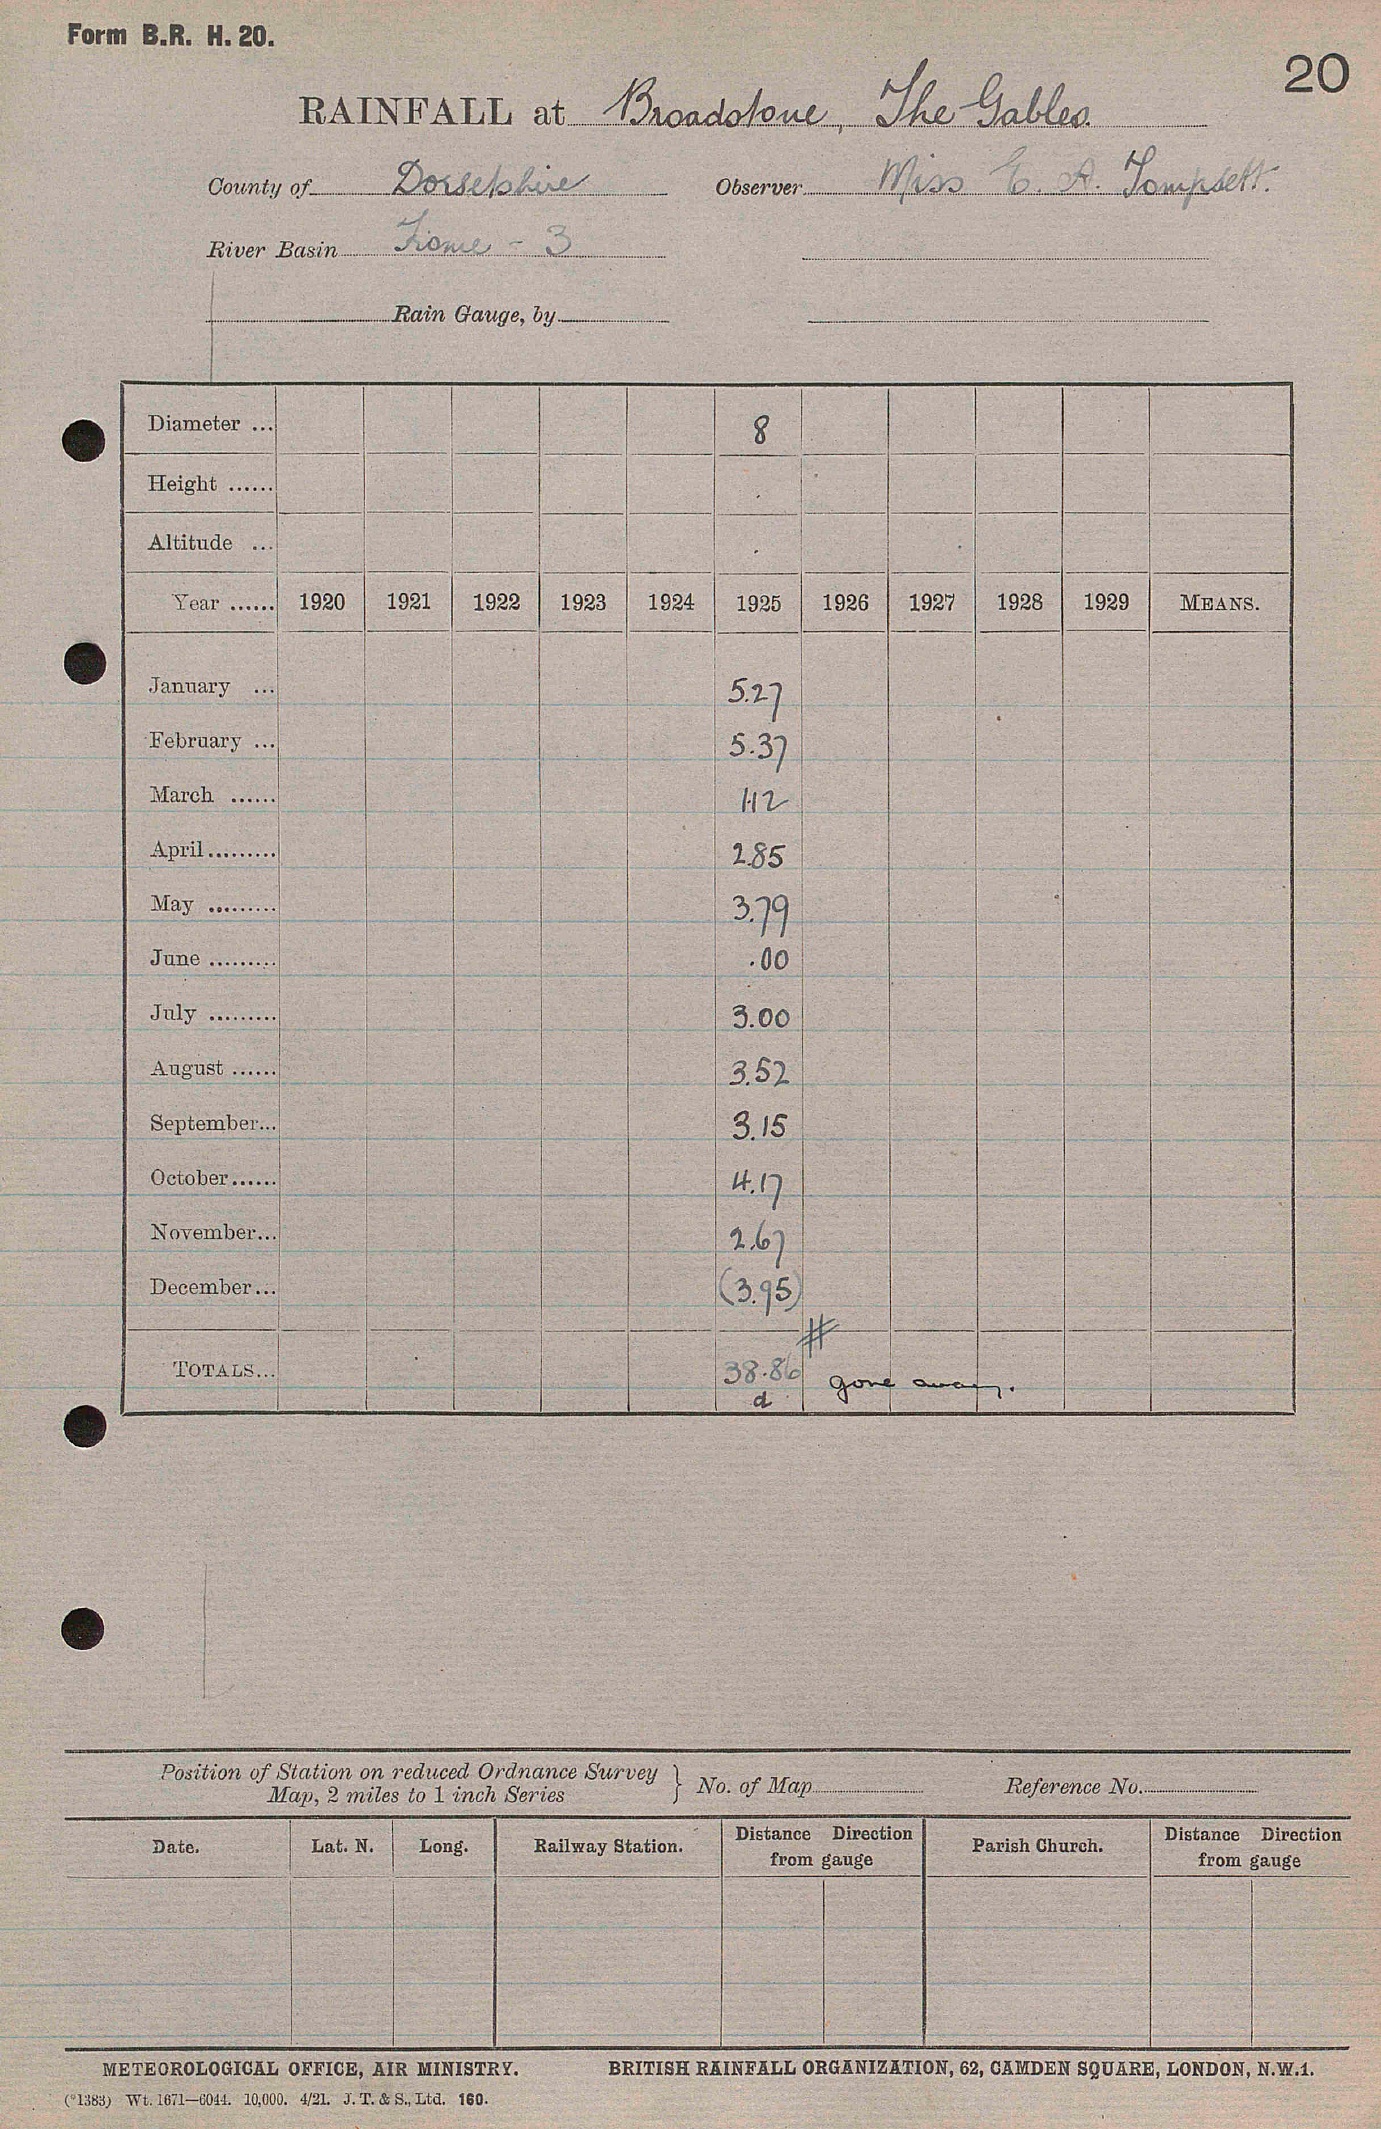 Form B.R. H. 20.
20
RAINFALL at Broadstone, The Gables.
County of Dorsetshire Observer Miss E. A. Tompsett.
River Basin Frome - 3
Rain Gauge, by
Diameter ... 8
Height ......
Altitude ...
Year ...... 1920 1921 1922 1923 1924 1925 1926 1927 1928 1929 MEANS.
January ... 5.27
February ... 5.37
March ...... 1.12
April......... 2.85
May ......... 3.79
June ......... .00
July ......... 3.00
August ...... 3.52
September... 3.15
October...... 4.17
November... 2.67
December... (3.95)
#
TOTALS... 38.86 gone away.
d
Position of Station on reduced Ordnance Survey
Map, 2 miles to 1 inch Series } No. of Map Reference No.
Date. Lat. N. Long. Railway Station. Distance Direction from gauge Parish Church. Distance Direction from gauge
METEOROLOGICAL OFFICE, AIR MINISTRY. BRITISH RAINFALL ORGANIZATION, 62, CAMDEN SQUARE, LONDON, N.W.1.
(*1383) Wt. 1671—6044. 10,000. 4/21. J. T. & S., Ltd. 160.